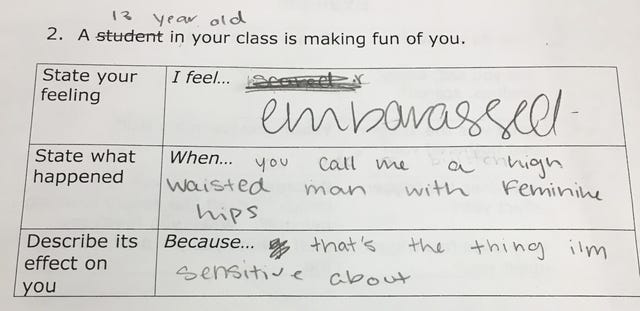 13 year old
2. A student in your class is making fun of you.
State your feeling
I feel...
embarassed
State what happened
When... you call me a high
waisted man with Feminine
hips
Describe its effect on you
Because... that's the thing i'm
sensitive about